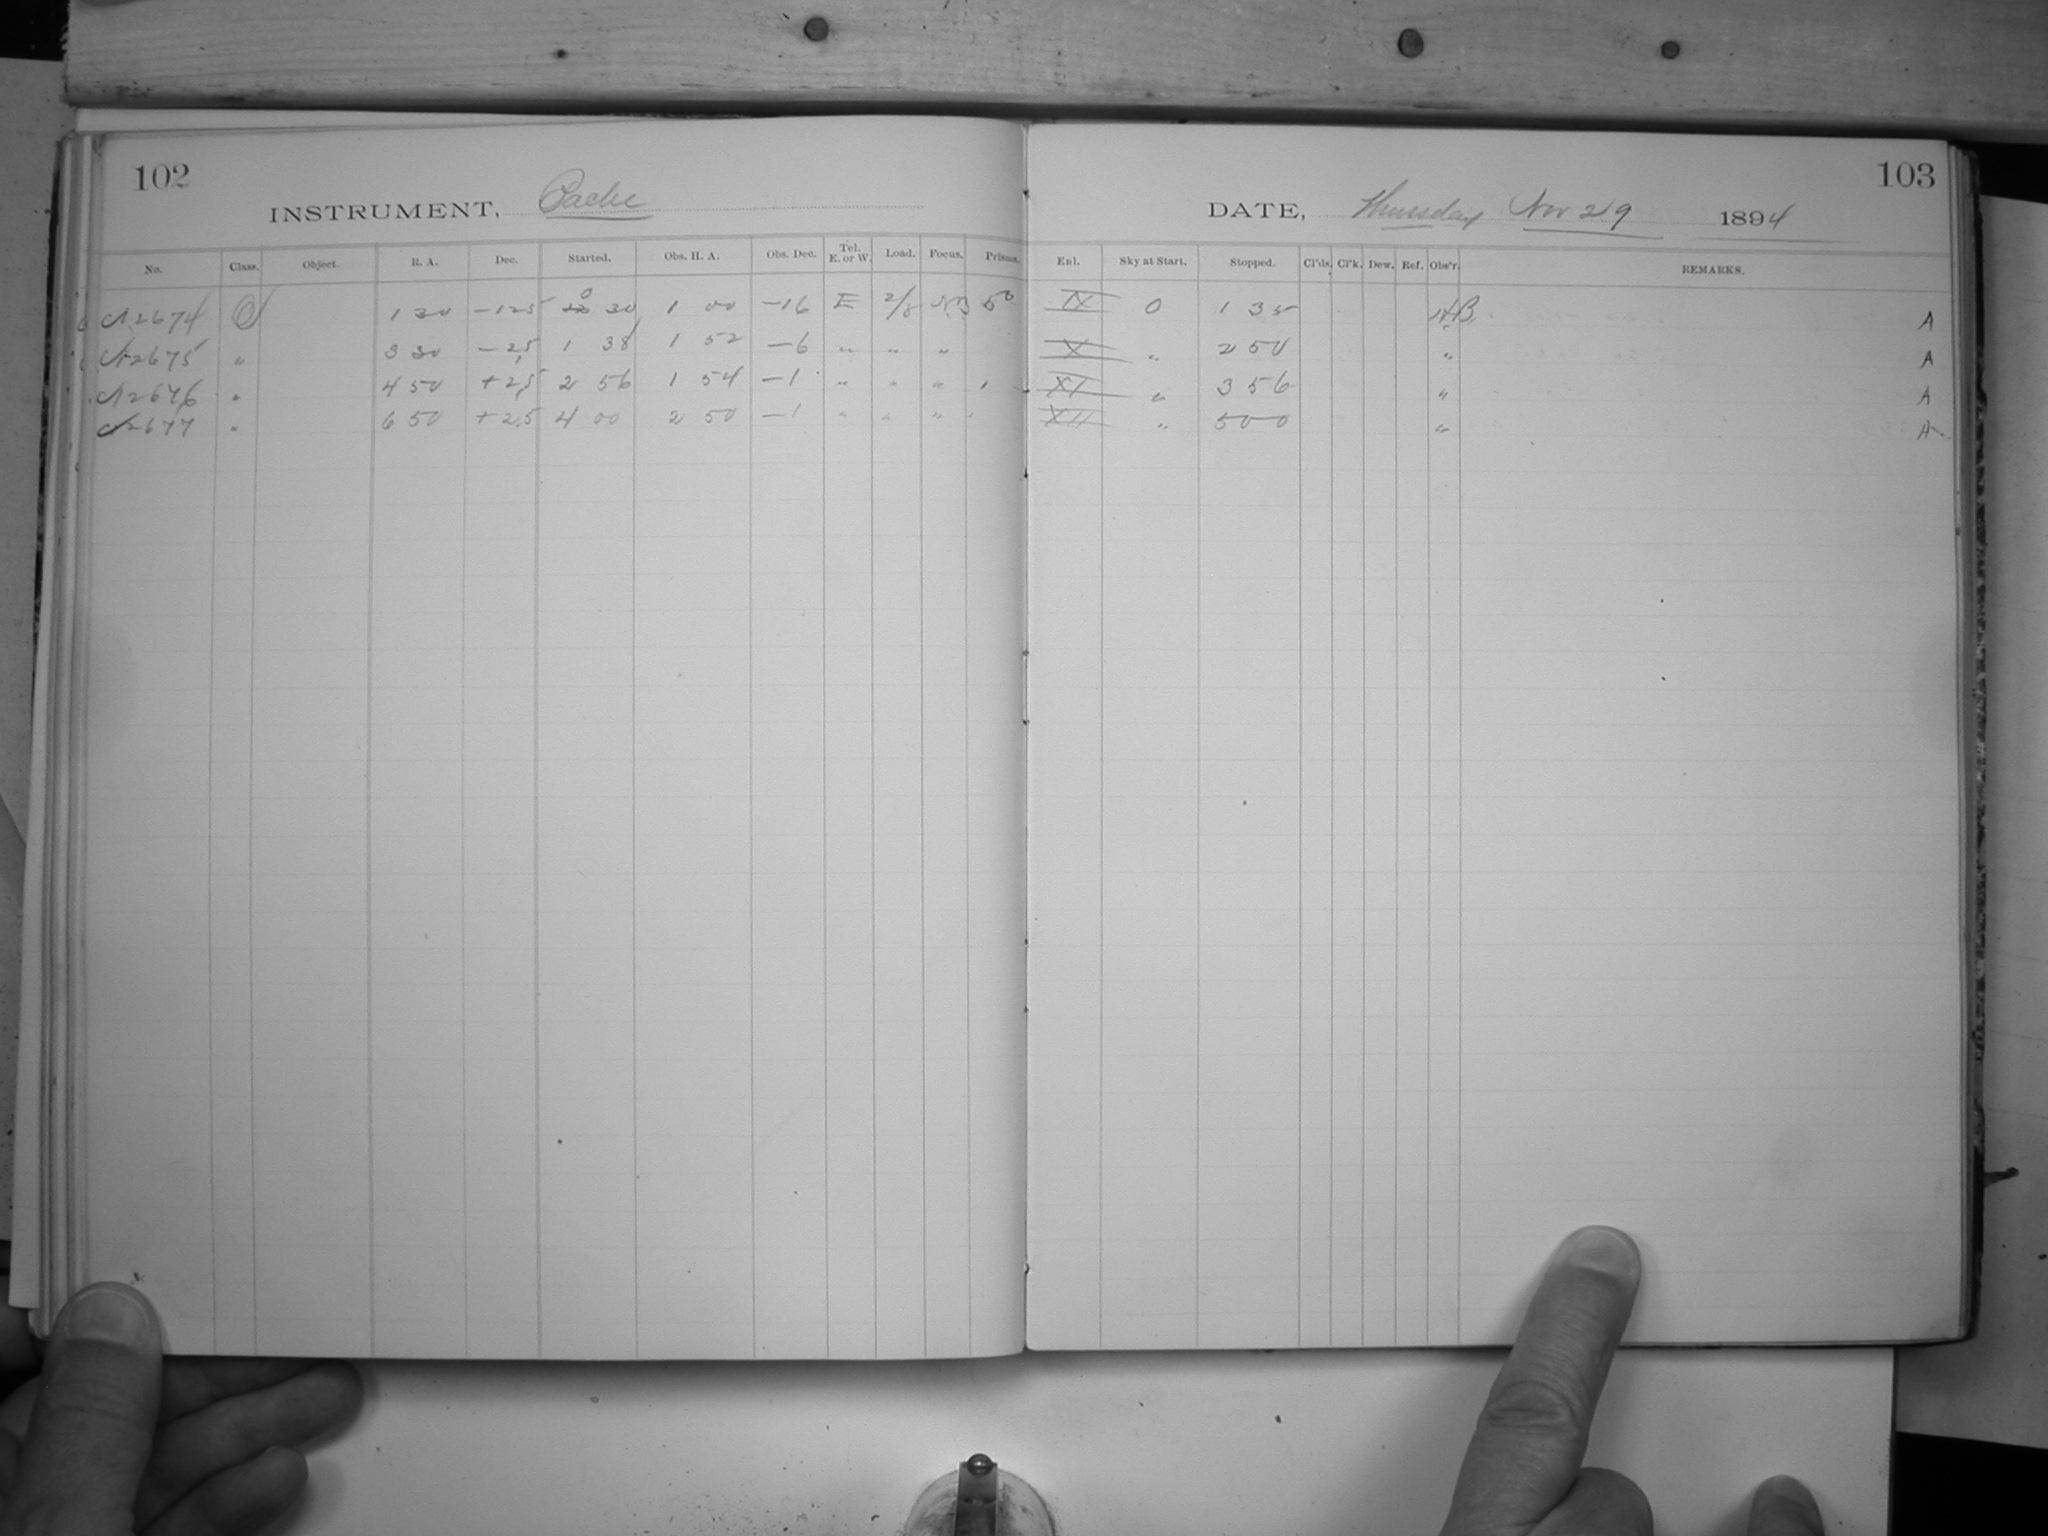 102
INSTRUMENT, Bache
No. Class. Object. R. A. Dec. Started. Obs. H. A. Obs. Dec. Tel. E. or W. Load. Focus. Prisms.
2674 1 30 -12.5 0 30 1 00 -16 E
2675 " 3 30 -2.5 1 38 1 52 -6 " " "
2676 " 4 50 +2.5 2 56 1 54 -1 " " "
2677 " 6 50 +2.5 4 00 2 50 -1 " " "
103
DATE, Thursday Nov 29 1894
Enl. Sky at Start. Stopped. Cl'ds. Cl'k. Dew. Ref. Obs'r. REMARKS.
IX 0 1 35 A
X " 2 50 " A
XI " 3 56 " A
XII " 5 00 " A